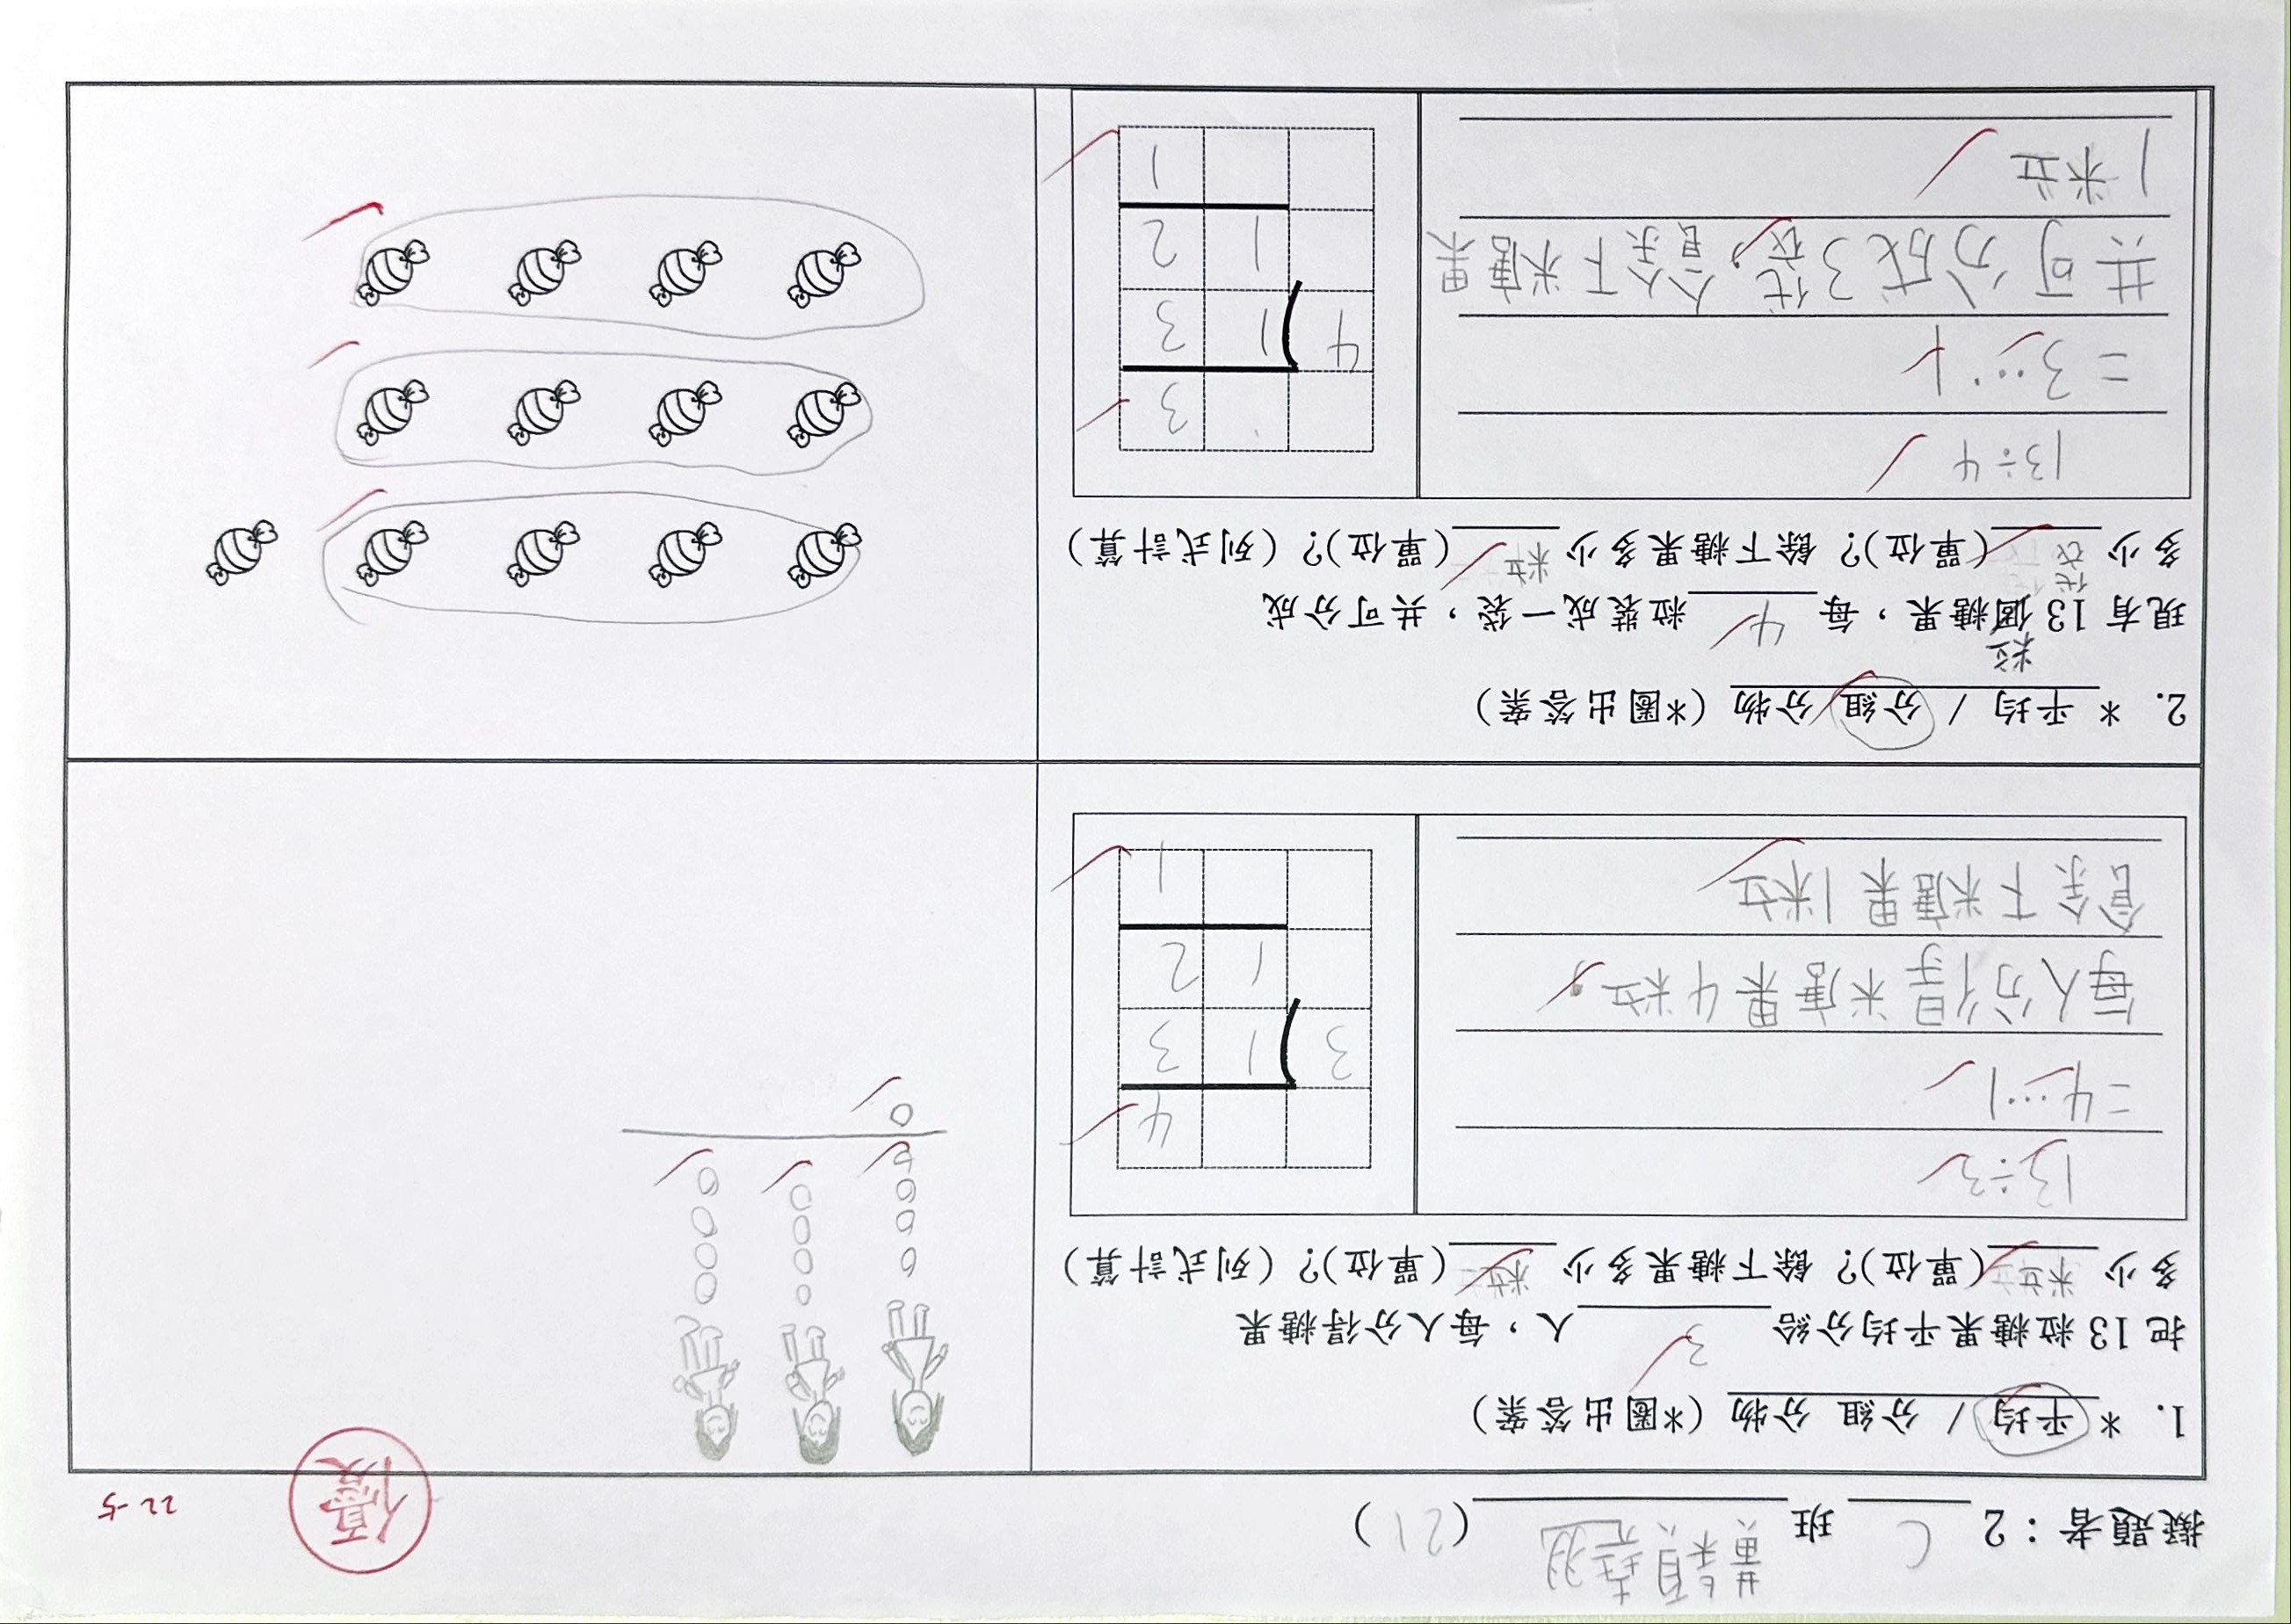 擬題者：2 C 班 黃穎翹 (21)
優
22-5
1. * 平均 / 分組 分物 (*圈出答案)
把13粒糖果平均分給 3 人，每人分得糖果
多少 粒 (單位)？餘下糖果多少 粒 (單位)？(列式計算)
13÷3
=4…1
每人分得糖果4粒，
餘下糖果1粒
4
3 1 3
1 2
1
2. * 平均 / 分組 分物 (*圈出答案)
粒
現有13個糖果，每 4 粒裝成一袋，共可分成
多少 袋 (單位)？餘下糖果多少 粒 (單位)？(列式計算)
13÷4
=3…1
共可分成3袋，餘下糖果
1粒
3
4 1 3
1 2
1